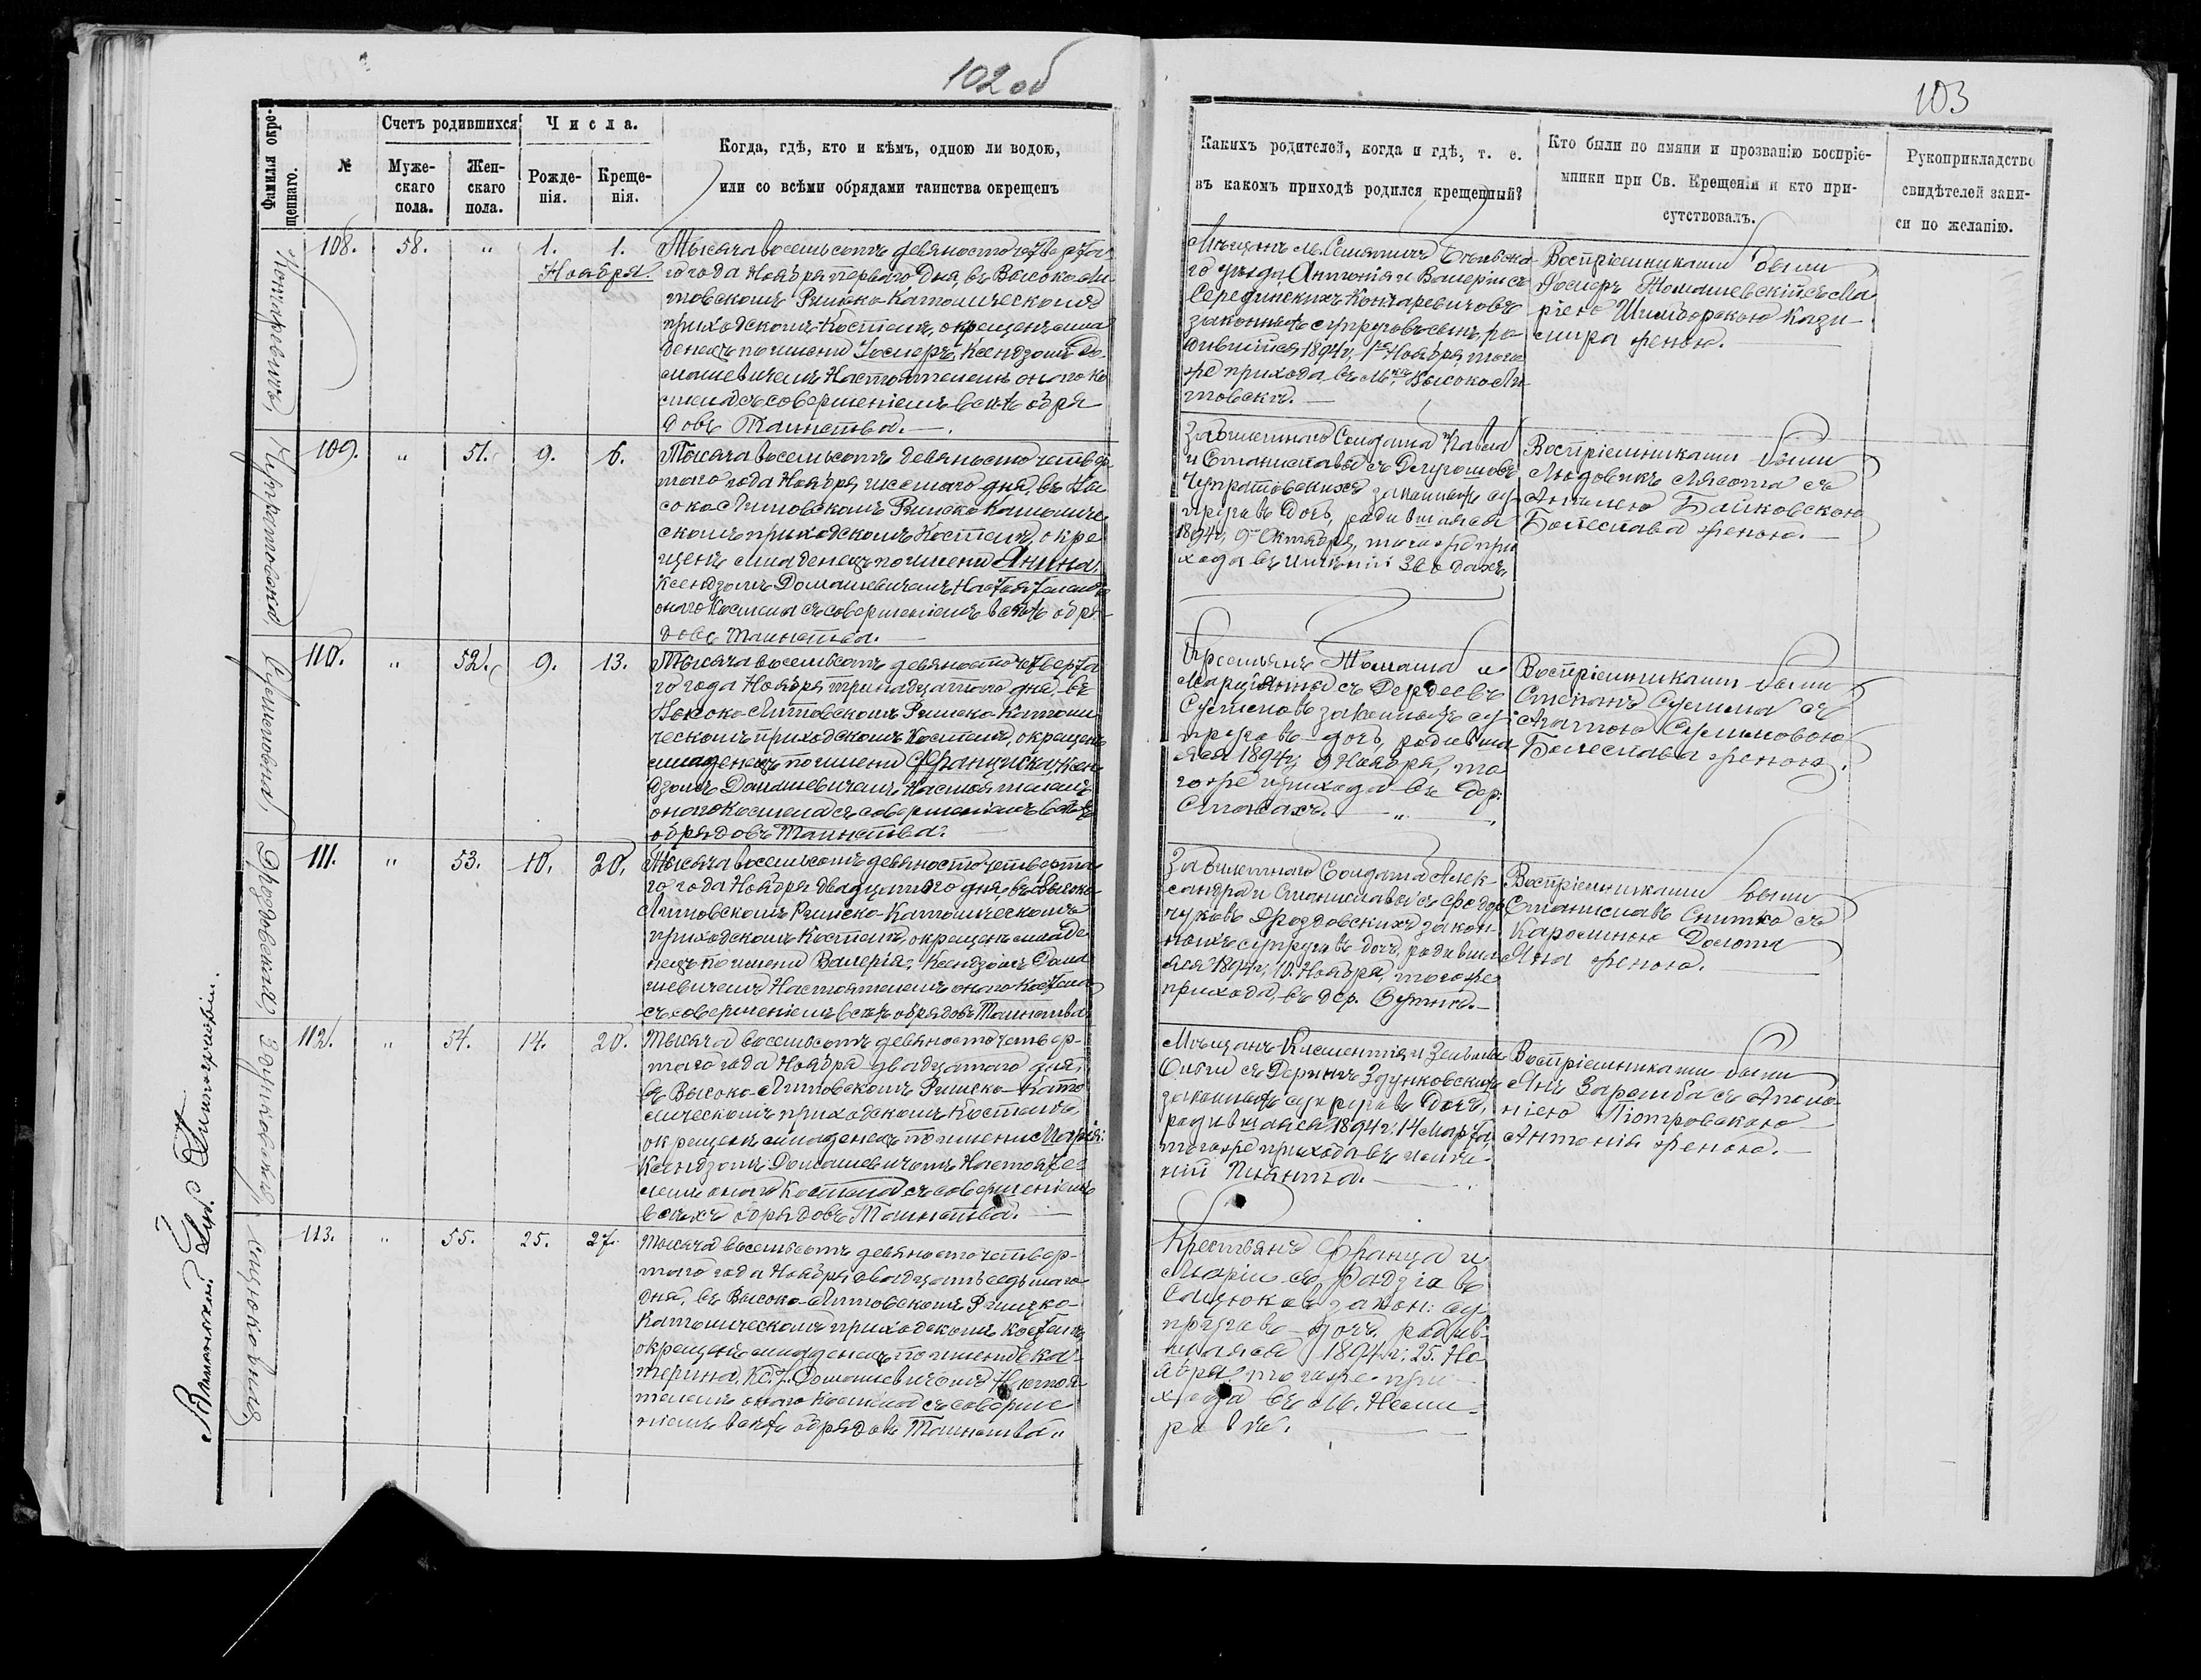 102 об
Фамилія окре-
щеннаго.
№
Счетъ родившихся
Муже-
скаго
пола.
Жен-
скаго
пола.
Числа.
Рожде-
нія.
Креще-
нія.
Когда, гдѣ, кто и кѣмъ, одною ли водою,
или со всѣми обрядами таинства окрещенъ
108. 58. " 1. 1.
Ноября.
Тысяча восемьсотъ девяносто четверта-
го года Ноября перваго дня, въ Высоко-Ли-
товскомъ Римско-Католическомъ
приходскомъ Костелѣ, окрещенъ мла
денецъ по имени Ксендзомъ До-
машевичемъ Настоятелемъ онаго Ко
стела съ совершеніемъ всѣхъ обря
довъ Таинства.
109. " 51. 9. 6.
Тысяча восемьсотъ девяносто четвер
таго года Ноября шестаго дня, въ Вы
соко Литовскомъ Римско Католиче
скомъ приходскомъ Костелѣ, окре
щенъ младенецъ по имени Янина,
Ксендзомъ Домашевичемъ Настоятелемъ
онаго Костела съ совершеніемъ всѣхъ обря-
довъ Таинства.
110. " 52. 9. 13.
Тысяча восемьсотъ девяносто четверта
го года Ноября тринадцатаго дня, въ
Высоко-Литовскомъ Римско-Католи
ческомъ приходскомъ Костелѣ, окрещенъ
младенецъ по имени Франциска, Ксен
дзомъ Домашевичемъ Настоятелемъ
онаго Костела съ совершеніемъ всѣхъ
обрядовъ Таинства.
Дроздовская
111. " 53. 10. 20.
Тысяча восемьсотъ девяносто четверта
го года Ноября двадцатаго дня, въ Высоко-
Литовскомъ Римско-Католическомъ
приходскомъ Костелѣ, окрещенъ младе
нецъ по имени Валерія, Ксендзомъ Дома
шевичемъ Настоятелемъ онаго Костела
съ совершеніемъ всѣхъ обрядовъ Таинства
Здунковская
112. " 54. 14. 20.
Тысяча восемьсотъ девяносто четвер-
таго года Ноября двадцатаго дня,
въ Высоко-Литовскомъ Римско-Като
лическомъ приходскомъ Костелѣ,
окрещенъ младенецъ по имени Марія:
Ксендзомъ Домашевичемъ Настояте
лемъ онаго Костела съ совершеніемъ
всѣхъ обрядовъ Таинства.
113. " 55. 25. 27.
Тысяча восемьсотъ девяносто четвер-
таго года Ноября двадцать седьмаго
дня, въ Высоко-Литовскомъ Римско-
Католическомъ приходскомъ Костелѣ,
окрещенъ младенецъ по имени Ека-
терина, Домашевичемъ Настоя-
телемъ онаго Костела съ соверше
ніемъ всѣхъ обрядовъ Таинства
103
Какихъ родителей, когда и гдѣ, т. е.
въ какомъ приходѣ родился крещенный?
Кто были по имяни и прозванію воспріе-
мники при Св. Крещеніи и кто при-
сутствовалъ.
Рукоприкладство
свидѣтелей запи-
си по желанію.
Мѣщанъ м. Семятичъ Бѣльска-
го уѣзда, Антонія и Валеріи съ
Серединскихъ Кончаревичовъ
законныхъ супруговъ сынъ, ро
дившійся 1894 г. 1го Ноября, того
же прихода, въ Высоко Ли
товскѣ.
Воспріемниками были
Томашевскій съ Ма
ріею Казі-
мира женою.
и Станиславы съ
законныхъ су
пруговъ дочь, родившаяся
1894 г. 9го Октября, того же при
хода въ имѣніи
Воспріемниками были
Людовикъ Лясота съ
Байковскою
Болеслава женою.
Крестьянъ Томаша и
Маріанны съ
законныхъ су
пруговъ дочь, родивша
яся 1894 г. 9 Ноября, то
го же прихода въ дер.
Ставахъ.
Воспріемниками были
Степанъ съ
Болеслава женою.
Солдата Алек-
сандра и Станиславы съ
Дроздовскихъ закон
ныхъ супруговъ дочь, родивша
яся 1894 г. 10. Ноября, того же
прихода, въ дер.
Воспріемниками были
Станиславъ Снитко съ
Каролиною
Яна женою.
Мѣщанъ Климентія и
съ Здунковскихъ
законныхъ супруговъ дочь,
родившаяся 1894 г. 14 Марта,
того же прихода въ имѣ-
ніи
Воспріемниками были
Янъ Заремба съ Аполо-
ніею Піотровскою
Антонія женою.
Крестьянъ Франца и
Маріи съ
Сацюковъ закон: су-
пруговъ дочь, родив-
шаяся 1894 г. 25. Но
ября того же при-
хода въ м. Неми-
ровѣ.